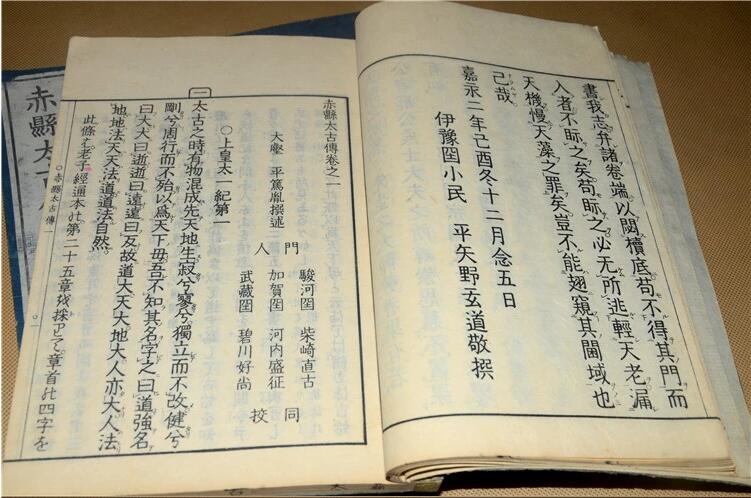 書我志弁諸卷端以閟櫝底苟不得其門而
入者不眎之矣苟眎之必无所逃輕天老漏
天機慢天藻之罪矣豈不能翅窺其閫域也
己哉
嘉永二年己酉冬十二月念五日
伊豫圀小民 平矢野玄道敬撰
赤縣太古傳卷之一
大壑 平篤胤撰述
門人
駿河圀 柴崎直古
加賀圀 河内盛征
武藏圀 碧川好尚
同校
○上皇太一紀第一
太古之時有物混成先天地生寂兮寥兮獨立而不改健兮
剛兮周行而不殆以爲天下毋吾不知其名字之曰道強名
曰大大曰逝逝曰遠遠曰反故道大天大地大人亦大人法
地地法天天法道道法自然
此條は老子經通本の第二十五章を採りて章首の四字を
一
○赤縣太古傳一
赤縣太古